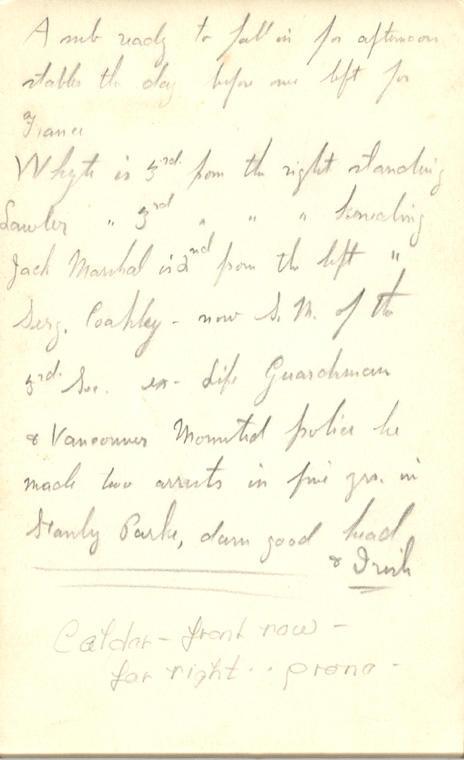 A sub ready to fall in for afternoon
stables the day before we left for
France
Whyte is 3rd from the right standing
Lawler " 3rd " " " kneeling
Jack Marshal is 2nd from the left "
Serg. Coakley - now S. M. of the
3rd Sec. ex- Life Guardman
& Vancouver Mounted police he
made two arrests in five yrs. in
Stanly Parke, darn good head
& Irish
Calder - front row -
far right .. prone -